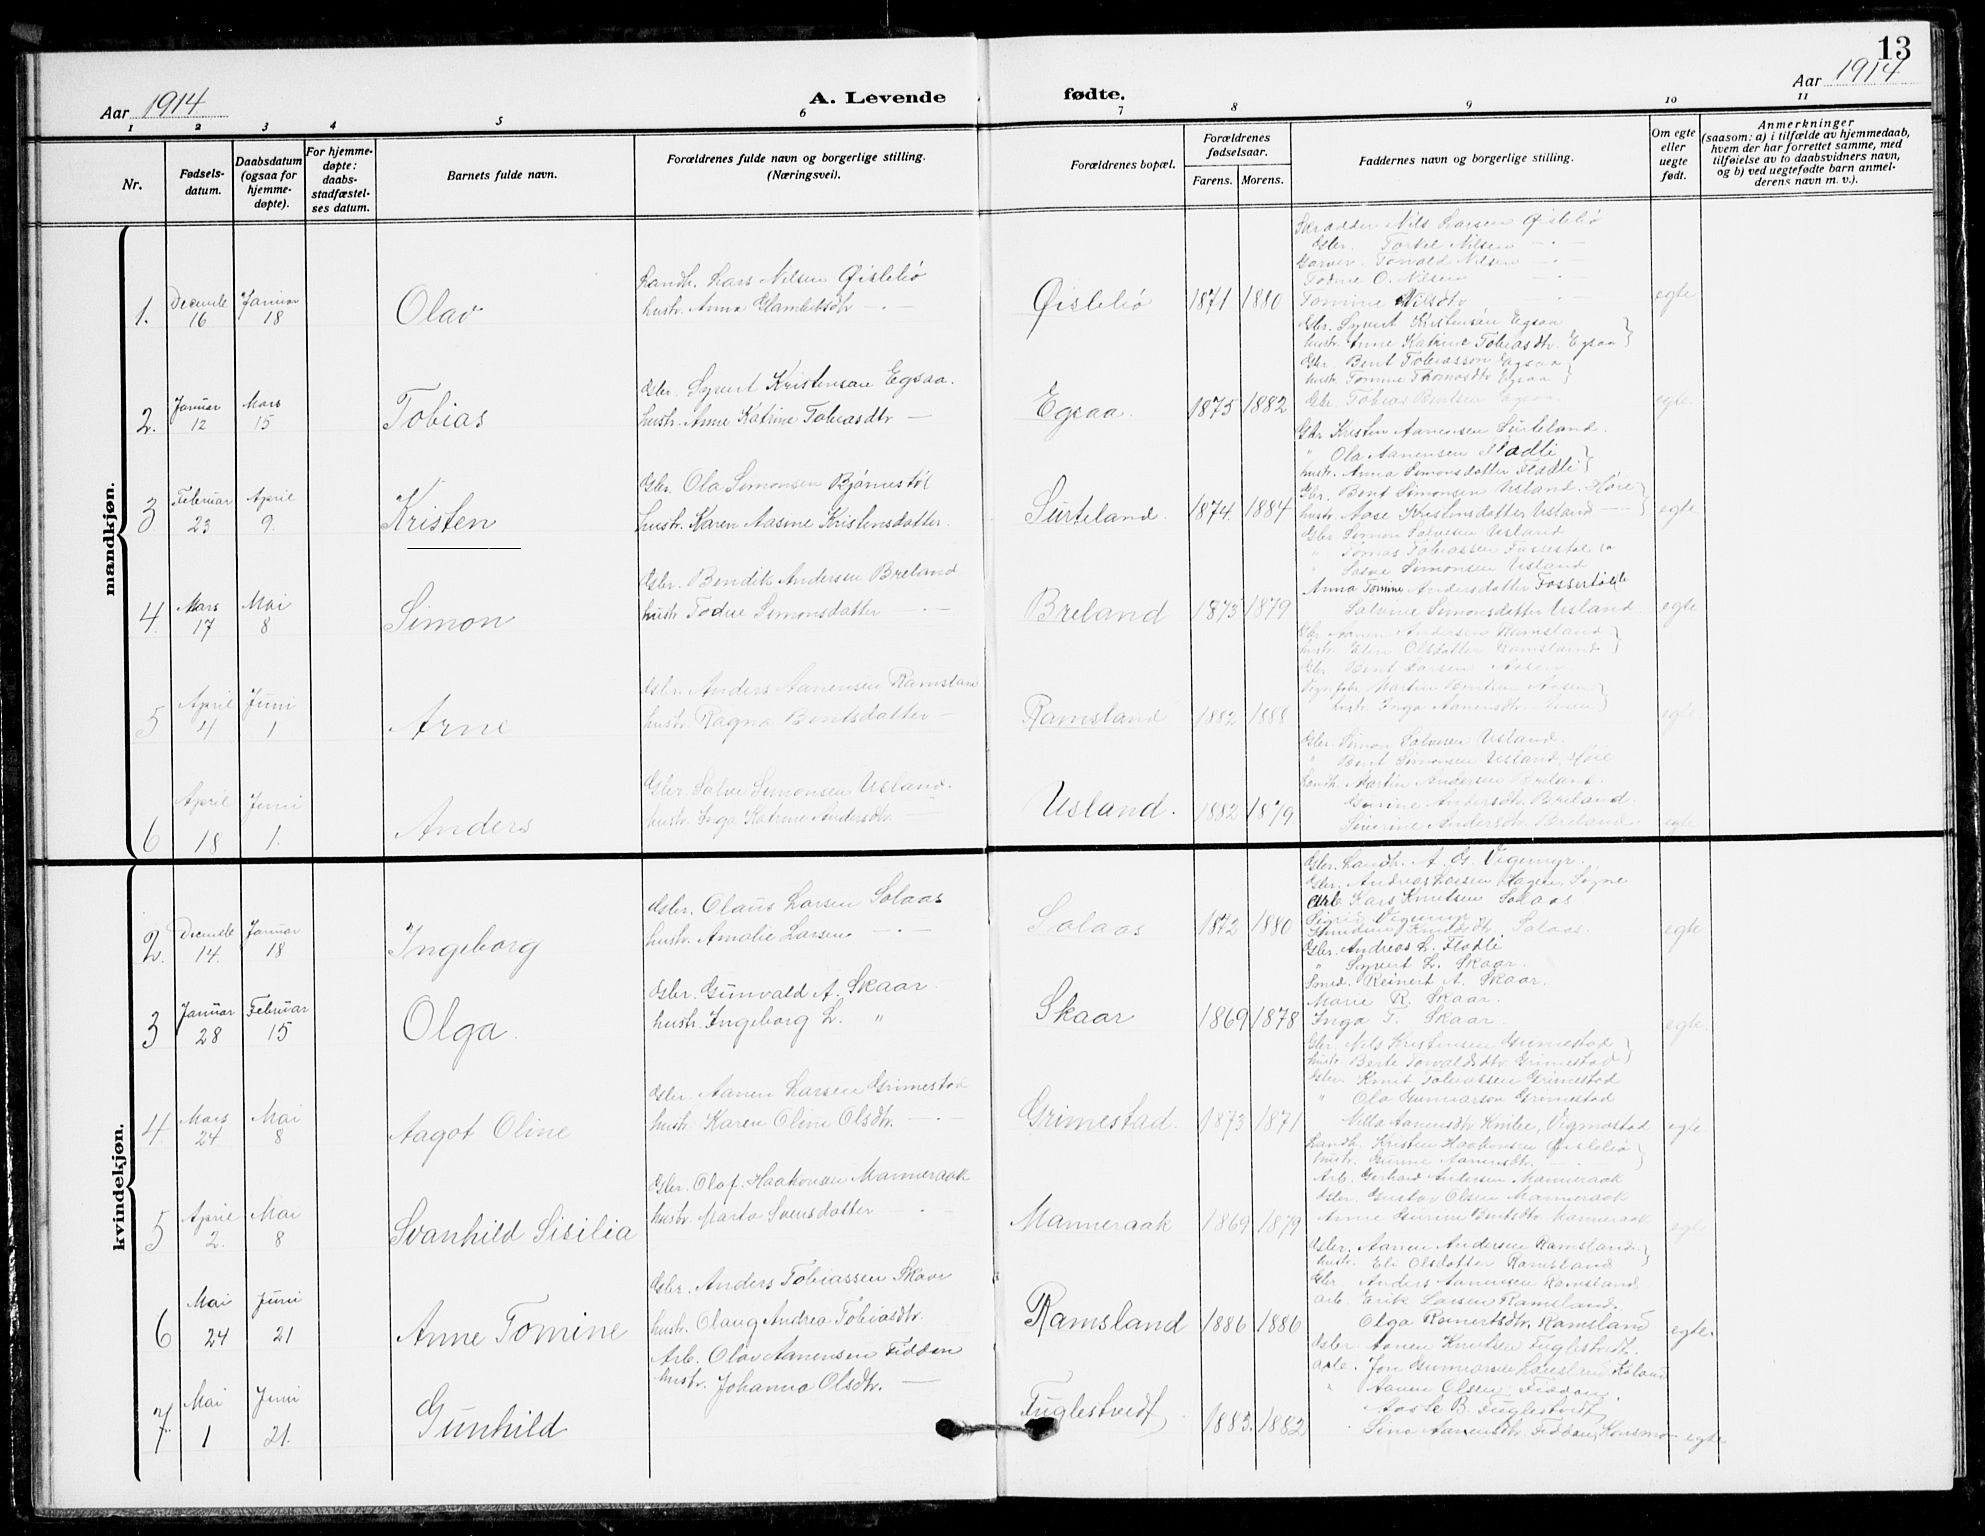 13
Aar 1914
A. Levende
fødte.
Aar 1914
1 2 3 4 5 6 7 8 9 10 11
Nr.
Fødsels-
datum.
Daabsdatum
(ogsaa for
hjemme-
døpte).
For hjemme-
døpte:
daabs-
stadfæstel-
ses datum.
Barnets fulde navn.
Forældrenes fulde navn og borgerlige stilling.
(Næringsvei).
Forældrenes bopæl.
Forældrenes
fødselsaar.
Farens. Morens.
Faddernes navn og borgerlige stilling.
Om egte
eller
uegte
født.
Anmerkninger
(saasom: a) i tilfælde av hjemmedaab,
hvem der har forrettet samme, med
tilføielse av to daabsvidners navn,
og b) ved uegtefødte barn anmel-
derens navn m. v.).
mandkjøn.
1. Decembr 16 Januar 18 Olav
Landh. Lars Nilsen Øislebø
hustr. Anna
Øislebø 1871 1880 egte
Skrædder Nils Larsen Øislebø
Gbr. Torkel Nilsen
Garver Torvald Nilsen
Todne O. Nilsen
Tomine Nilsdtr
2. Januar 12 Mars 15 Tobias
Gbr. Syvert Kristensen Egsaa.
hustr. Anne Katrine Tobiasdtr
Egsaa. 1875 1882 egte
Gbr. Syvert Kristensen Egsaa
hustr. Anne Katrine Tobiasdtr. Egsaa
Gbr. Bent Tobiasson Egsaa
hustr. Tomine Thomasdtr Egsaa
Gbr. Tobias Bentsen Egsaa
3 Februar 23 April 9. Kristen
Gbr. Ola Simonsen Bjønnestøl
hustr. Karen Aasine Kristensdatter
Surteland. 1874. 1884 egte
Gbr Kristen Aanensen Surteland.
" Ola Aanensen Flodli
hustr. Anna Simonsdatter Flodli
Gbr. Bent Simonsen Usland. Høie
hustr. Aase Kristensdatter Usland
4. Mars 17 Mai 8 Simon
Gbr. Bendik Andersen Breland
hustr. Todne Simonsdatter
Breland 1873 1879 egte
Gbr Simon Salvesen Usland
" Tomas Tobiassen
" Salve Simonsen Usland
Anna Tomine Andersdatter
Salvine Simonsdatter Usland.
5 April 4 Juni 1 Arne
Gbr. Anders Aanensen Ramsland
hustr. Ragna Bentsdatter
Ramsland 1882 1888 egte
Gbr Aanen Andersen Ramsland
hustr. Elen Olsdatter Ramsland
Gbr Bent Larsen Aasen
Martin Bentsen Aasen
hustr. Inga Aanensdtr Aasen
6 April 18 Juni 1. Anders
Gbr. Salve Simonsen Usland.
hustr. Inga Katrine Andersdtr
Usland. 1882 1879 egte
Gbr. Simon Salvesen Usland.
" Bent Simonsen Usland, Høie
Landh. Martin Andersen Breland.
Gurine Andersdtr Breland.
Severine Andersdtr Breland.
kvindekjøn.
2. Decembr 14. Januar 18 Ingeborg
Gbr. Olaus Larsen Solaas
hustr. Amalie Larsen
Solaas 1872 1880 egte
Gbr. Landh. A. G. Vigemyr.
Gbr. Andreas Larsen Hagen, Søgne
Arb Lars Knutsen Solaas
Sigrid Vigemyr
Knutsdtr. Solaas.
3 Januar 28 Februar 15 Olga
Gbr. Gunvald A. Skaar.
hustr. Ingeborg L. "
Skaar 1869 1878 egte.
Gbr. Andreas L. Flodli
" Syvert L. Skaar.
Smed. Reinert A. Skaar.
Marie R. Skaar.
Inga T. Skaar.
4. Mars 24 Mai 8 Aagot Oline
Gbr. Aanen Larsen Grimestad
hustr. Karen Oline Olsdtr.
Grimestad. 1873 1871 egte
Gbr. Nils Kristensen Grimestad
hustr. Berte Torvaldsdtr Grimestad
Gbr. Knut Tobiassen Grimestad
" Ola Gunnarson Grimestad
Aanensdtr Vigmostad
5 April 2. Mai 8 Svanhild Sisilia
Gbr. Olaf Haakonsen Manneraak
hustr. Marta Svensdatter
Manneraak 1869 1879 egte
Landh. Kristen Haakonsen Øislebø
hustr. Gurine Aanensdtr.
Arb. Gerhard Andersen Manneraak
Gbr. Gustav Olsen Manneraak
Anne Gurine Bentsdtr Manneraak
6 Mai 24 Juni 21 Anne Tomine
Gbr. Anders Tobiassen Skaar
hustr. Olaug Andrea Tobiasdtr.
Ramsland 1886 1886 egte.
Gbr. Aanen Andersen Ramsland
hustr. Eli Olsdatter Ramsland
Gbr Anders Aanensen Ramsland
arb. Erik Larsen Ramsland.
Olga Reinertsdtr. Ramsland
7 Mai 1 Juni 21. Gunhild
Arb. Olav Aanensen Fidden
hustr. Johanna Olsdtr.
Fuglestvedt 1883. 1882 egte
Gbr. Aanen Knutsen Fuglestvedt.
arb. Jon Gunnarsen
" Aanen Olsen Fidden.
Aaste B. Fuglestvedt
Sina Aanensdtr Fidden, Konsmo